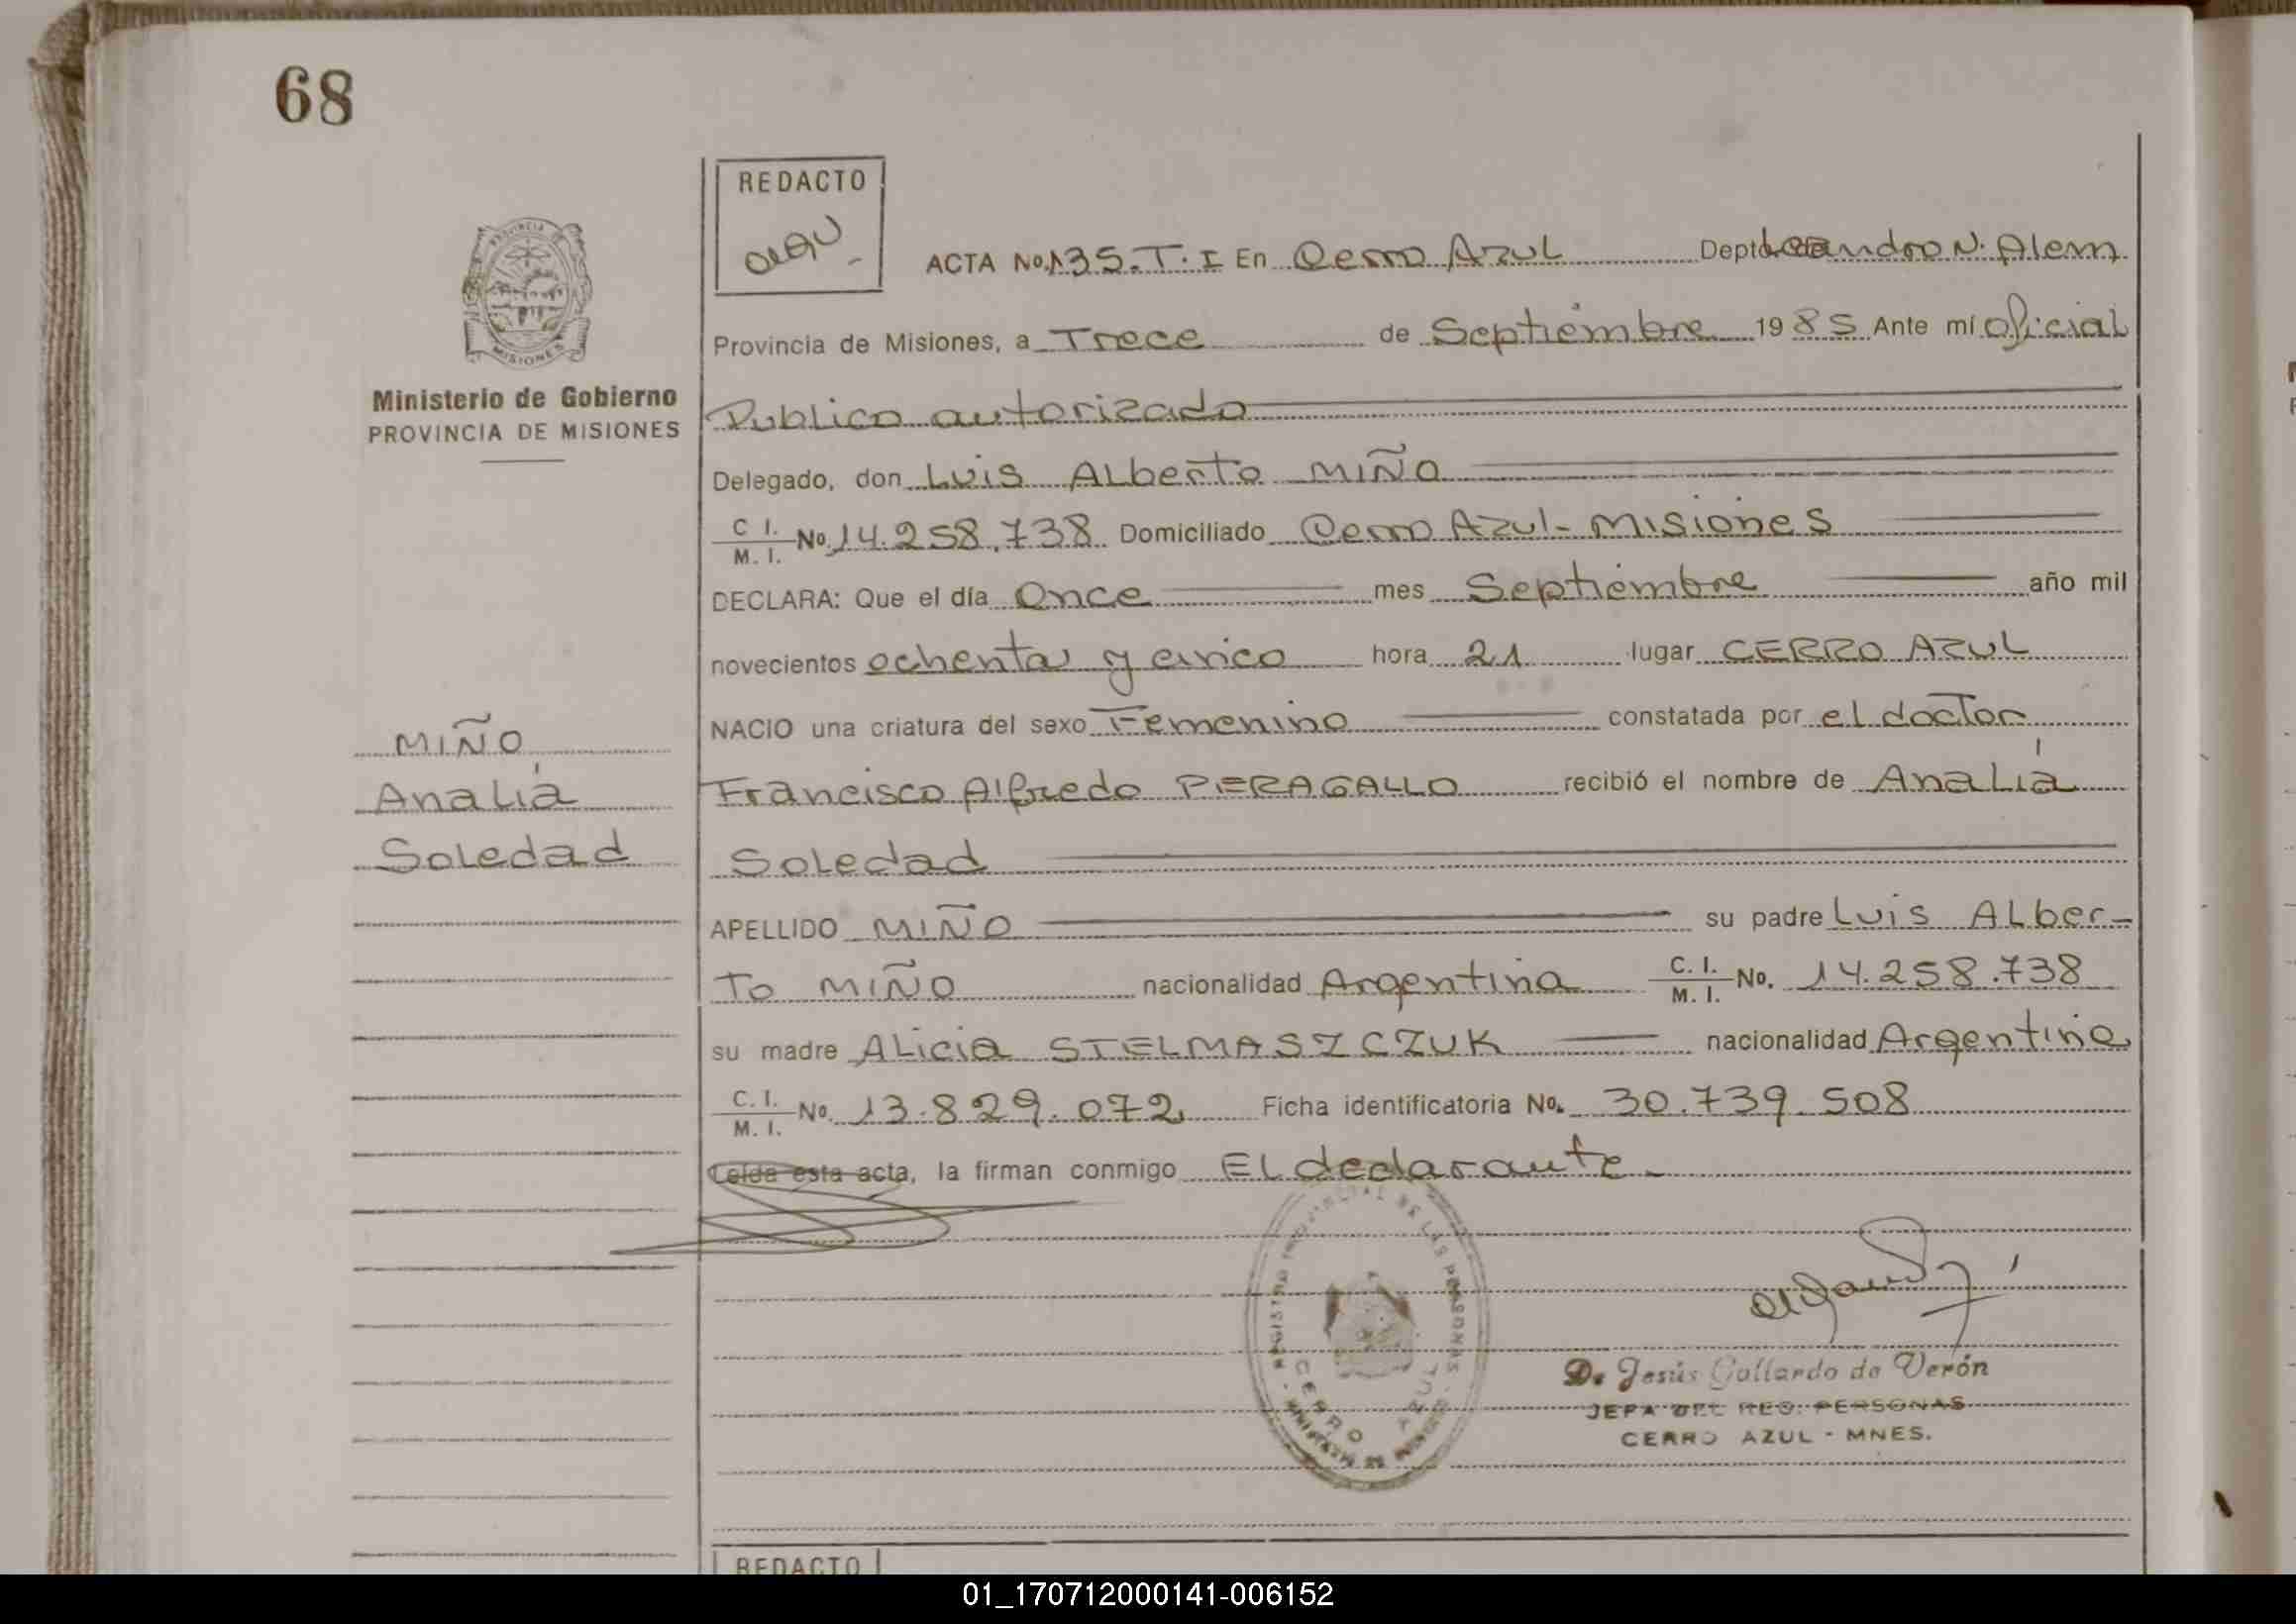 68
REDACTO
ACTA No. 135. T. I En Cerro Azul Depto. Leandro N. Alem
Provincia de Misiones, a Trece de Septiembre 1985 Ante mi oficial
Publico autorizado
Delegado, don Luis Alberto MIÑO
C I. M. I. No. 14.258.738 Domiciliado Cerro Azul - Misiones
DECLARA: Que el día Once mes Septiembre año mil
novecientos ochenta y cinco hora 21 lugar CERRO AZUL
NACIO una criatura del sexo Femenino constatada por el doctor
Francisco Alfredo PERAGALLO recibió el nombre de Analía
Soledad
APELLIDO MIÑO su padre Luis Alber-
to MIÑO nacionalidad Argentina C. I. M. I. No. 14.258.738
su madre Alicia STELMASZCZUK nacionalidad Argentina
C. I. M. I. No. 13.829.072 Ficha identificatoria No. 30.739.508
Leída esta acta, la firman conmigo El declarante.
PROVINCIA DE
MISIONES
Ministerio de Gobierno
PROVINCIA DE MISIONES
MIÑO
Analía
Soledad
REGISTRO PROVINCIAL DE LAS PERSONAS
CERRO AZUL
De Jesús Gallardo de Verón
JEFA DEL REG. PERSONAS
CERRO AZUL - MNES.
REDACTO
01_170712000141-006152